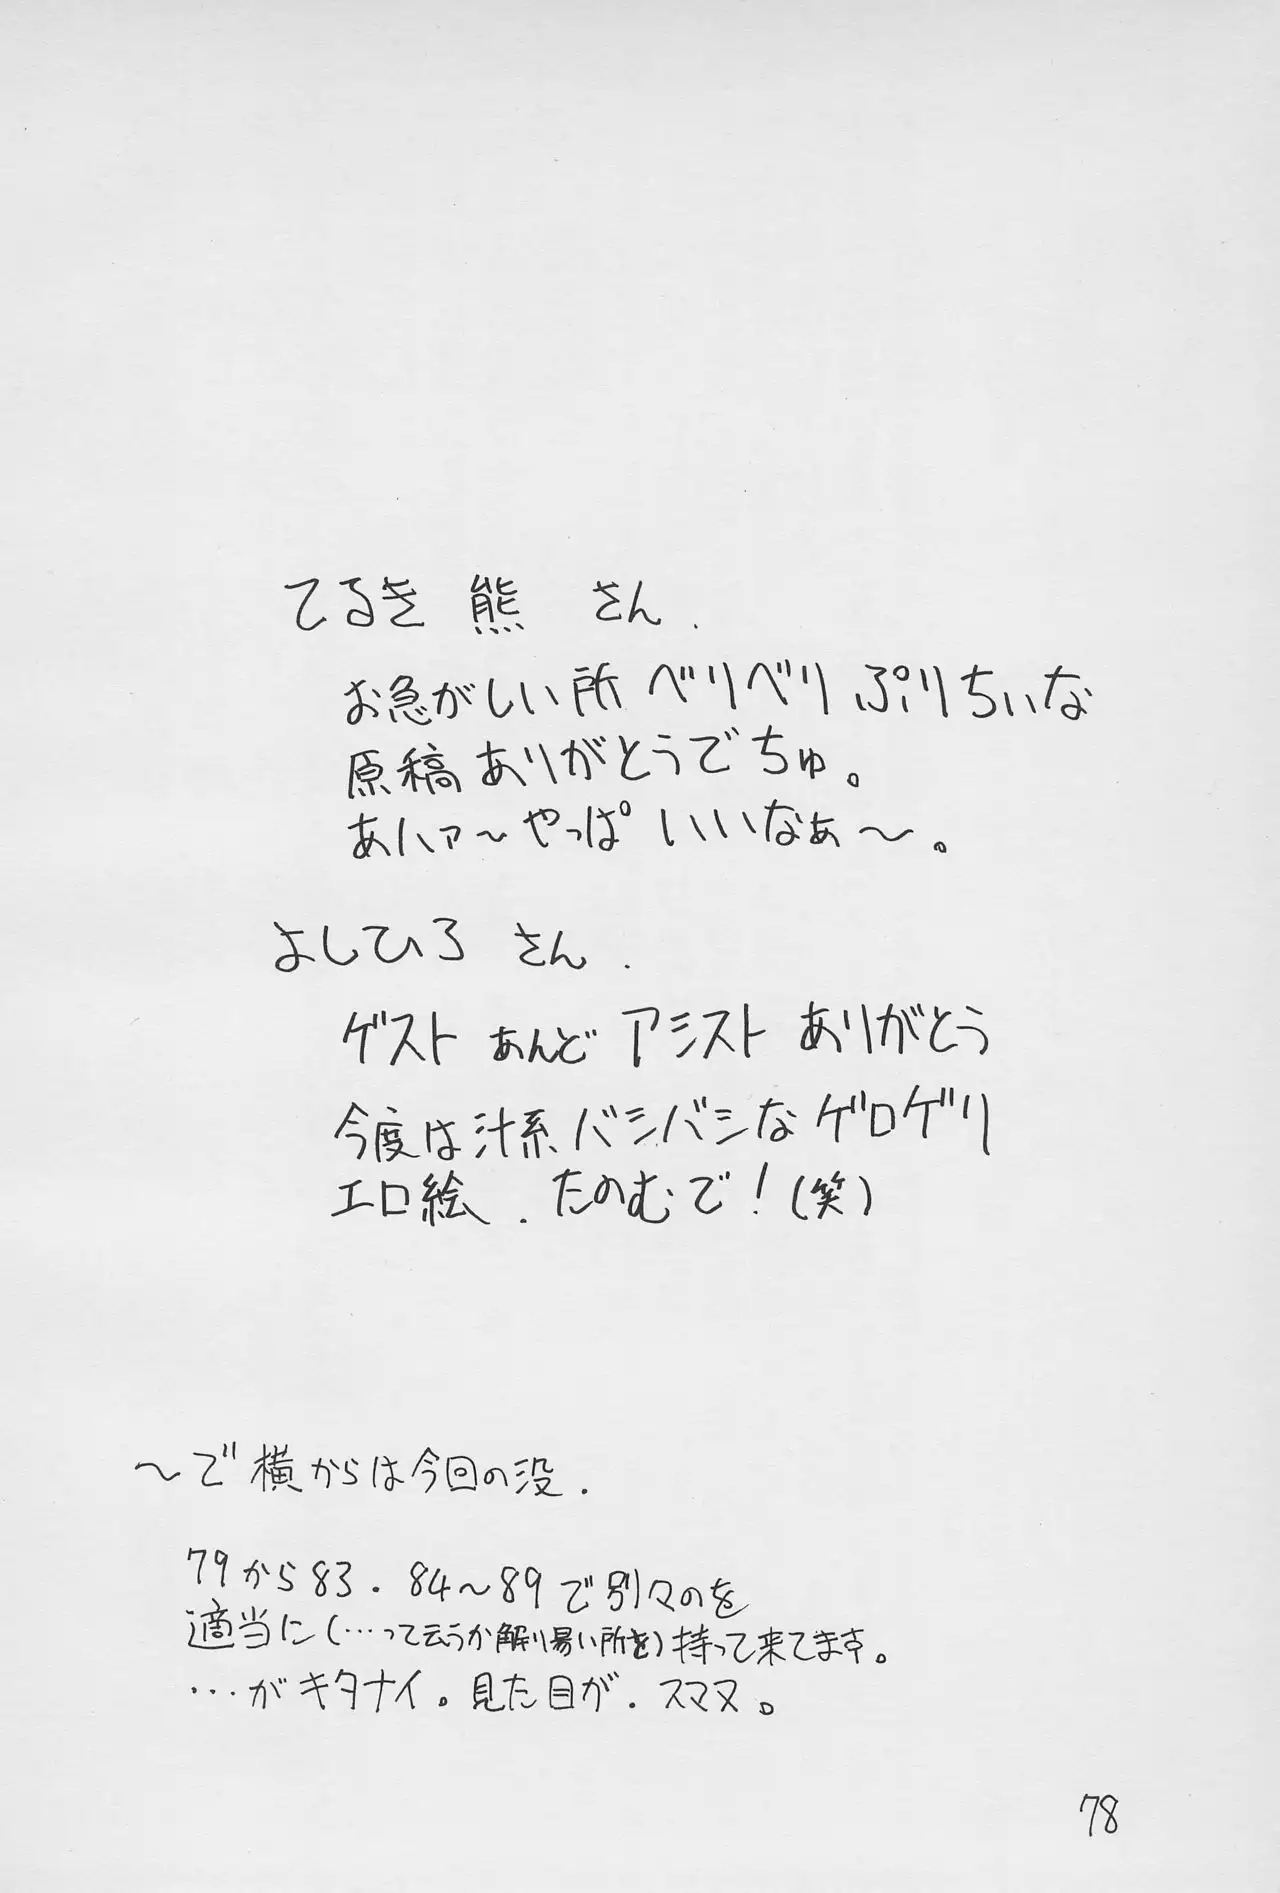 てるき熊 さん.
お急がしい所 ベリベリ ぷりちぃな
原稿ありがとうでちゅ。
あハァ〜やっぱ いいなぁ〜。
よしひろ さん.
ゲスト あんど アシスト ありがとう
今度は汁系バシバシなゲロゲリ
エロ絵. たのむで!(笑)
〜で横からは今回の没.
79から83. 84〜89で別々のを
適当に(…って云うか解り易い所を)持って来てます。
…がキタナイ。見た目が. スマヌ。
78